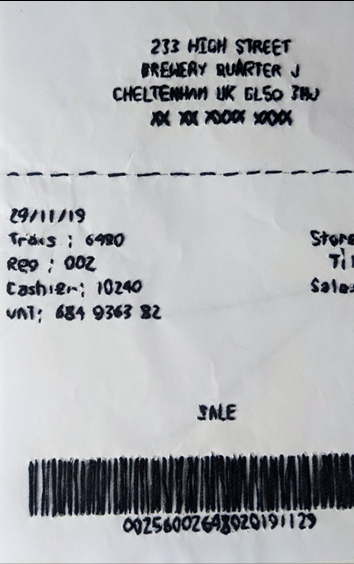 233 HIGH STREET
BREWERY QUARTER J
CHELTENHAM UK GL50 3HJ
XX XX XXXX XXXX
29/11/19
Trans : 6480
Reg : 002
Cashier: 10240
VAT: 684 9363 82
Store
Ti
Sales
SALE
00256002648020191129